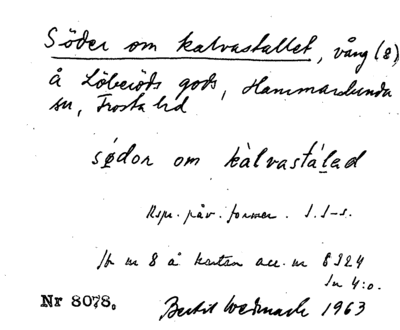 Söder om kalvastallet, vång (8)
å Löberöds gods, Hammarlunda
sn, Frosta hd
sødor om kàlvastálad
Uspr. påv. former. S. S-s.
Jfr nr 8 å kartan acc. nr 8324
In 4:o.
Nr 8078. Bertil Wedmark 1963